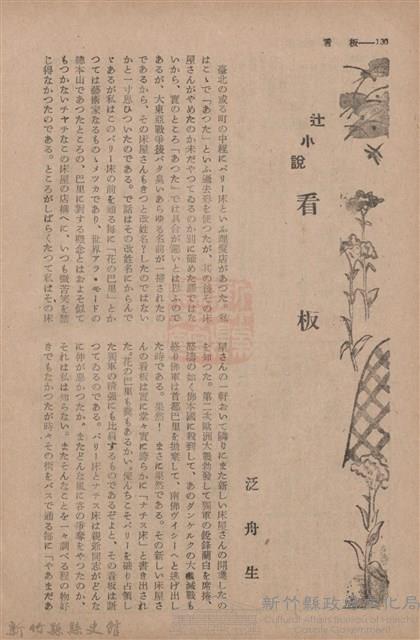 看　板――130
辻小説
看板
泛舟生
臺北の或る町の中程にパリー床といふ理髮店があつた。私
はこゝで「あつた」といふ過去形を使つたが、其の後その床
屋さんがやめたのか未だやつてゐるのか別に確めた譯ではな
いから、實のところ「あつた」では具合が惡いとは思ふので
あるが、大東亞戰爭後バタ臭いあらゆる名前が一掃されたの
であるから、その床屋さんもきつと改姓名？したのではない
かと一寸思ひついたのである。で話はその改姓名にからんで
ゞあるが私はこのパリー床の前を通る每に「花の巴里」とか
つては藝術家なるものゝメツカであり、世界アラ・モードの
總本山であつたところの、巴里に對する概念とはおよそ似て
もつかないチヤチなこの床屋の店構へに、いつも微苦笑を禁
じ得なかつたのである。ところがしばらくたつて私はその床
屋さんの一軒おいて隣りにまた新しい床屋さんの開業したの
を知つた。第二次歐洲大戰勃發して獨軍の銳鋒蘭白を席捲、
怒濤の如く佛本國に殺到して、あのダンケルクの大殲滅戰も
終り佛軍は首都巴里を拋棄して、南佛ヴイシーへと逃げ出し
た時である。果然！　まさに果然である。その新しい床屋さ
んの看板は實に堂々實に誇らかに「ナチス床」と書き出され
た。花の巴里も糞もあるかい。俺んちこそパリーを乘り占領し
た獨軍の精强にも比肩するものであるぞよと、その看板は訴
つてゐるのである。パリー床とナチス床は親爺同志がどんな
に仲が惡かつたか、またどんな風に客の爭奪をやつたのか、
それは私は知らない。またそんなことを一々調べる程の物好
きでもなかつたが時々その街をバスで通る每に「やあまだあ
新竹縣縣史館
新竹縣政府文化局
Cultural Affairs Bureau